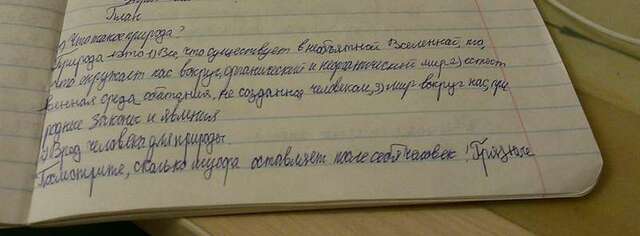 План
1) Что такое природа?
Природа - это 1) Все, что существует в необъятной Вселенной, то,
что окружает нас вокруг, органический и неорганический мир 2) естест
венная среда обитания, не созданная человеком, 3) мир вокруг нас, при
родные законы и явления
Вред человека для природы.
Посмотрите, сколько мусора оставляет после себя человек! Грязные